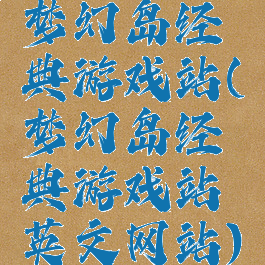 梦幻岛经
典游戏站(
梦幻岛经
典游戏站
英文网站)